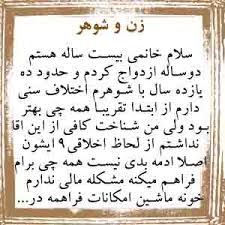 زن و شوهر
سلام خانمی بیست ساله هستم
دوساله ازدواج کردم و حدود ده
یازده سال با شوهرم اختلاف سنی
دارم از ابتدا تقریبا همه چی بهتر
بود ولی من شناخت کافی از این اقا
نداشتم از لحاظ اخلاقی۹ ایشون
اصلا ادمه بدی نیست همه چی برام
فراهم میکنه مشکله مالی ندارم
خونه ماشین امکانات فراهمه در...